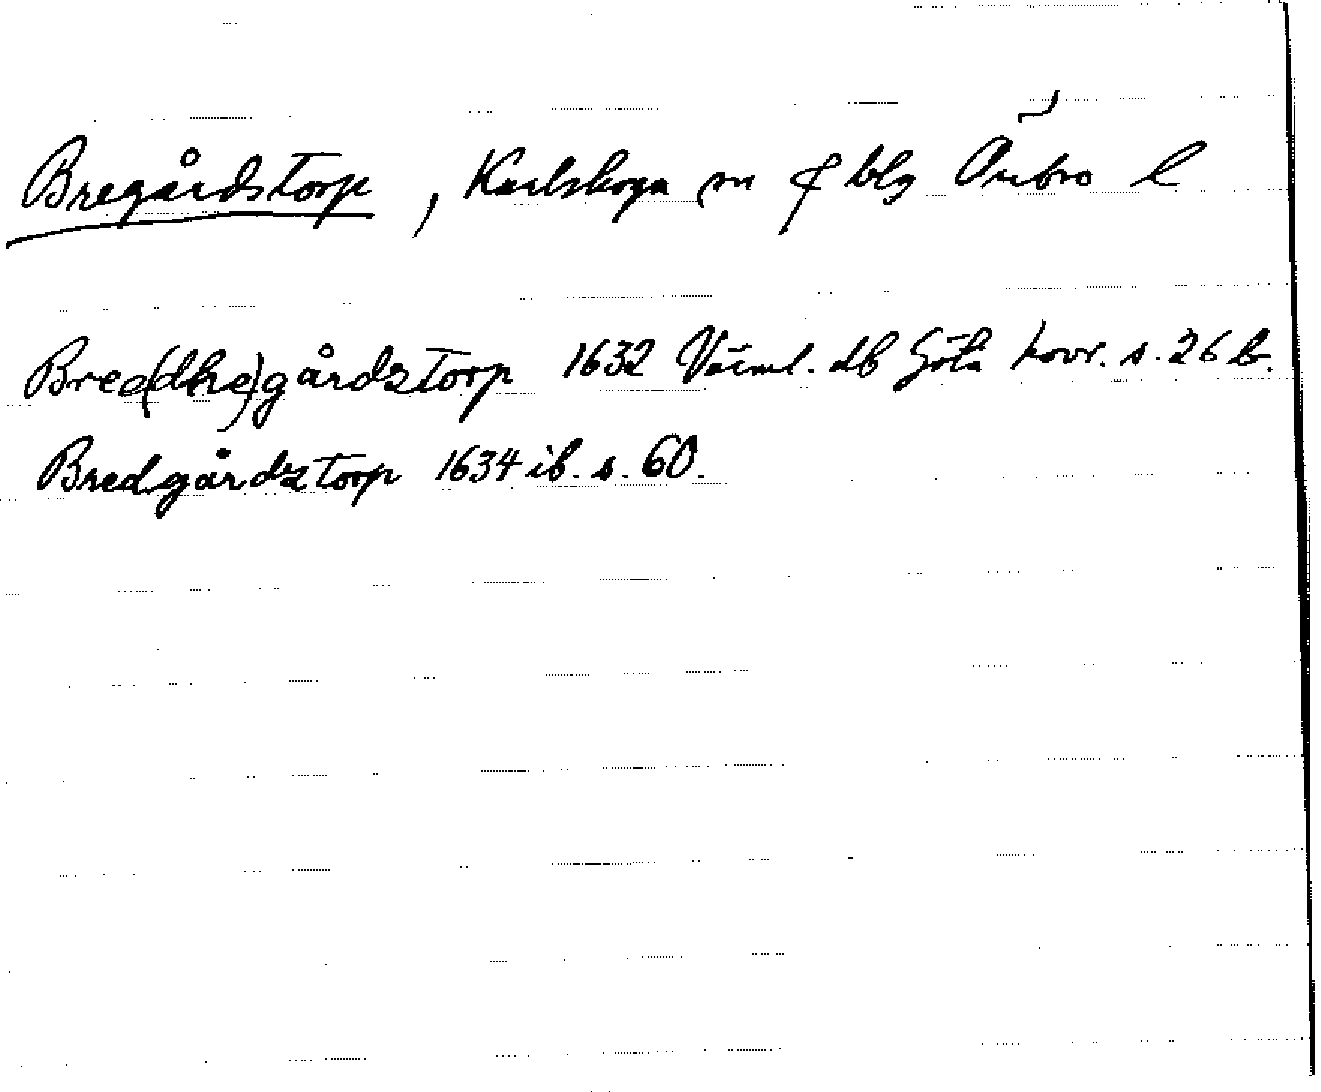 Bregårdstorp, Karlskoga sn o blg Örebro l
Bree(dhe)gårdztorp 1632 Värml. db Göta hovr. s. 26 b.
Bredgårdztorp 1634 ib. s. 60.